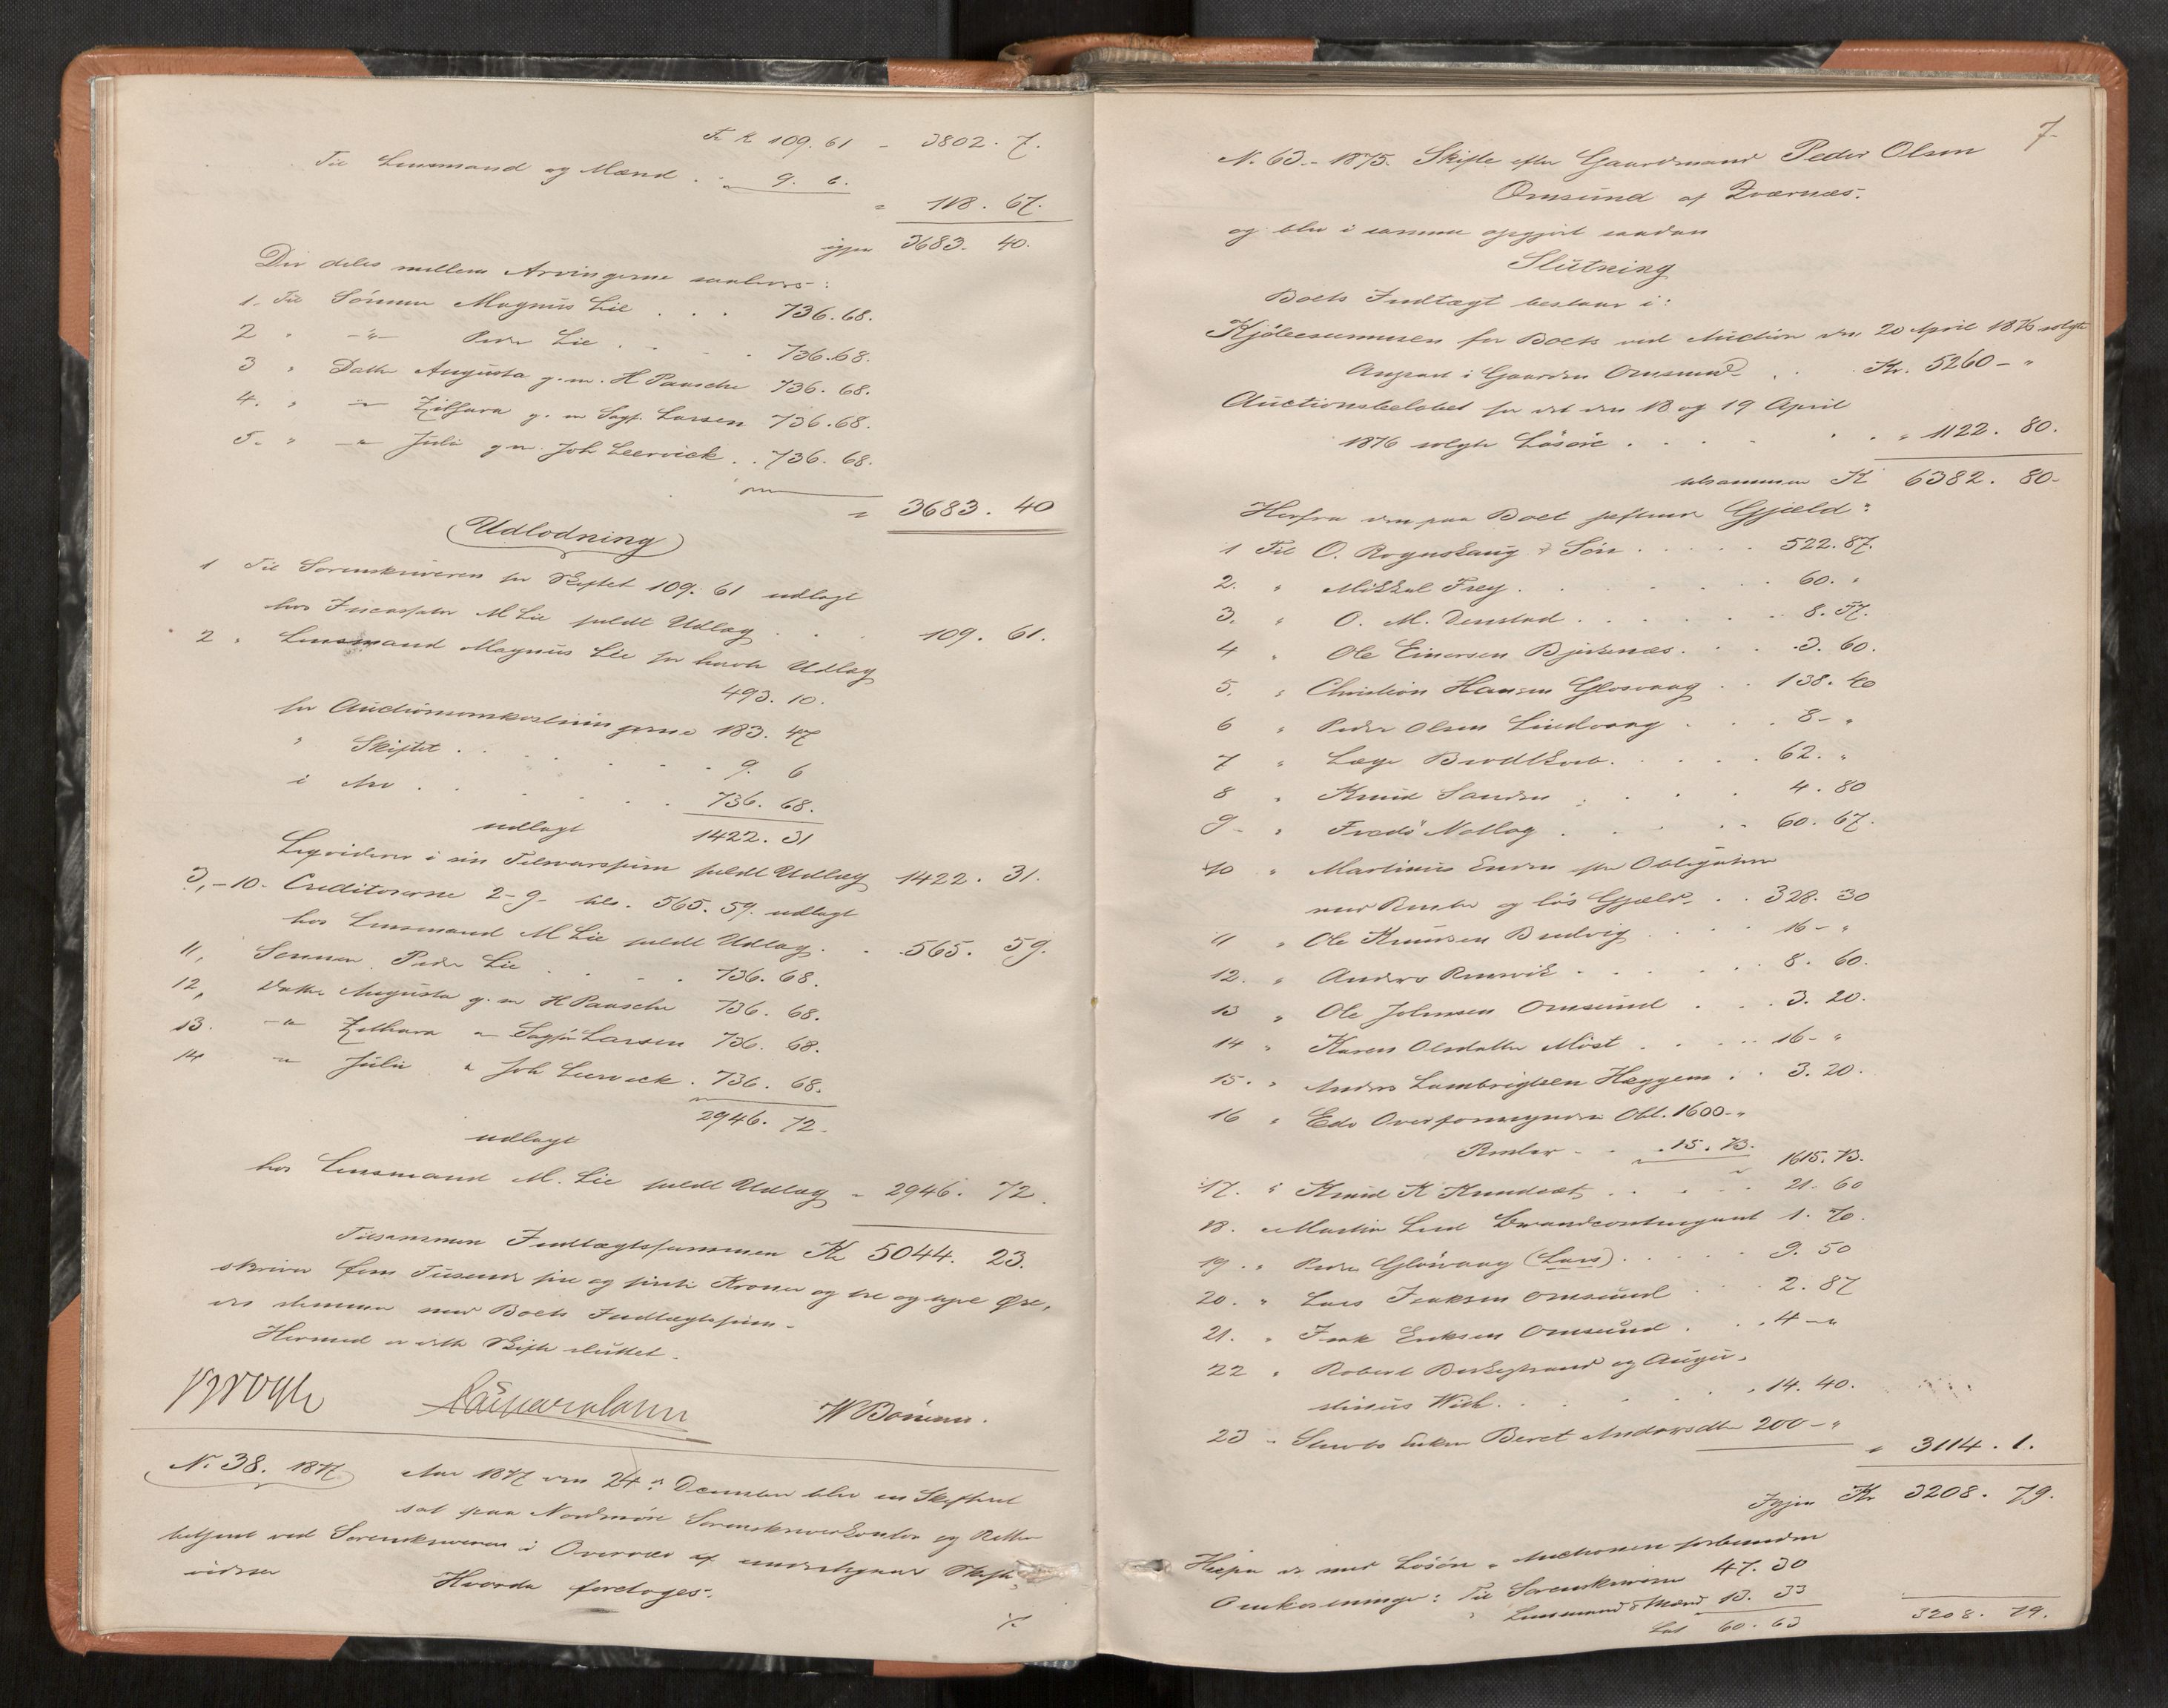 Fr. Kr 109. 61 - 3802. 7.
Til Lensmand og Mænd . . " 9. 6.
" 118. 67.
igjen 3683. 40.
Der deles mellem Arvingerne saaledes:
1. Til Sönnen Magnus Lie . . . 736. 68.
2 " -"- Peder Lie . . . . 736. 68.
3 " Datter Augusta g. m. H Paasche 736. 68.
4. " -"- Zilfara g. m Sagf. Larsen 736. 68.
5. " -"- Juli g m. Joh Leervick . . 736. 68.
" 3683. 40
Udlodning
1 Til Sorenskriveren for Skiftet 109. 61 udlagt
hos Incassator M Lie fuldt Udlæg . . . 109. 61.
2 " Lensmand Magnus Lie for havte Udlæg
493. 10.
for Auctionsomkostningerne 183. 47
" Skiftet . . . . . . 9. 6
i Arv . . . . . . 736. 68.
udlagt 1422. 31
Liqviderer i sin Tilsvarssum fuldt Udlæg 1422. 31.
3, - 10. Creditorerne 2-9- tils. 565. 59. udlagt
hos Lensmand M Lie fuldt Udlæg . . 565. 59.
11, Sönnen Peder Lie . . . . 736. 68.
12, Datter Augusta g. m H Paasche 736. 68.
13. -"- Zilhara " Sagfr Larsen 736. 68.
14 -"- Julie " Joh Leervick . 736. 68.
2946. 72.
udlagt
hos Lensmand M. Lie fuldt Udlæg " 2946. 72.
Tilsammen Indtægtssummen Kr 5044. 23.
skriver fem Tusende fire og firti Kroner og tre og tyve Øre,
der stemmer med Boets Indtægtssum.
Hermed er dette Skifte sluttet.
W Boismann.
N. 38. 1877 Aar 1877 den 24de December blev en Skifteret
sat paa Nordmöre Sorenskriverkontor og Retten
betjent ved Sorenskriveren i Overvær af undertegnede Skifte-
vidner Hvorda foretoges:
7.
N. 63.- 1875. Skifte efter Gaardmand Peder Olsen
Omsund af Kværnæs.
og blev i samme opgjort saadan
Slutning
Boets Indtægt bestaar i:
Kjöbesummen for Boets ved Auction den 20 April 1876 solgte
Anpart i Gaarden Omsund . . Kr. 5260 - "
Auctionsbelöbet for det den 18 og 19 April
1876 solgte Lösöre . . . . . . " 1122. 80.
tilsammen Kr 6382. 80.
Herfra den paa Boet heftende Gjæld:
1 Til O. Rognskaug & Sön . . . . . 522. 87.
2. " Mikkel Frey . . . . . . . 60. "
3. " O. M. Denstad . . . . . . 8. 57.
4 " Ole Einersen Bjerkenæs . . . 3. 60.
5. " Christian Hansen Glosvaag . . 138. 40
6 " Peder Olsen Lindvaag . . . . 8 - "
7 " Læge Brodtkorb . . . . . 62. "
8 " Knud Sanden . . . . . 4. 80
9 - " Fredö Notlag . . . . . 60. 67.
10 " Martinus Enden efter Obligation
med Renter og lös Gjæld . . . 328. 30
11 " Ole Knudsen Bredvig . . . . 16 - "
12. " Anders Remvik . . . . . 8. 60.
13 " Ole Johnsen Omsund . . . 3. 20.
14 " Karen Olsdatter Möst . . . . 16 - "
15. " Anders Lambrigtsen Heggem . . 3. 20.
16 " Edö Overformynderi Obl. 1600 - "
Renter - . . 15. 73. " 1615. 73.
17. " Knud K Knudset . . . . . 21. 60
18. " Martin Lied Brandcontingent 1. 70.
19. " Peder Glosvaag (Lars) . . . . 9. 50
20. " Lars Isaksen Omsund . . 2. 87
21. " Isak Eriksen Omsund . . . 4 - "
22 " Robert Berkestrand og Augu-
stinius With . . . . . . 14. 40.
23 " Stervbo Enken Beret Andersdtr 200 - "
" 3114. 1.
Igjen Kr 3208. 79.
Heraf er med Lösöre-Auctionen forbundne
Omkostninger: Til Sorenskriveren 47. 30
" Lensmand & Mænd 13. 33
Lat 60. 63 3208. 79.